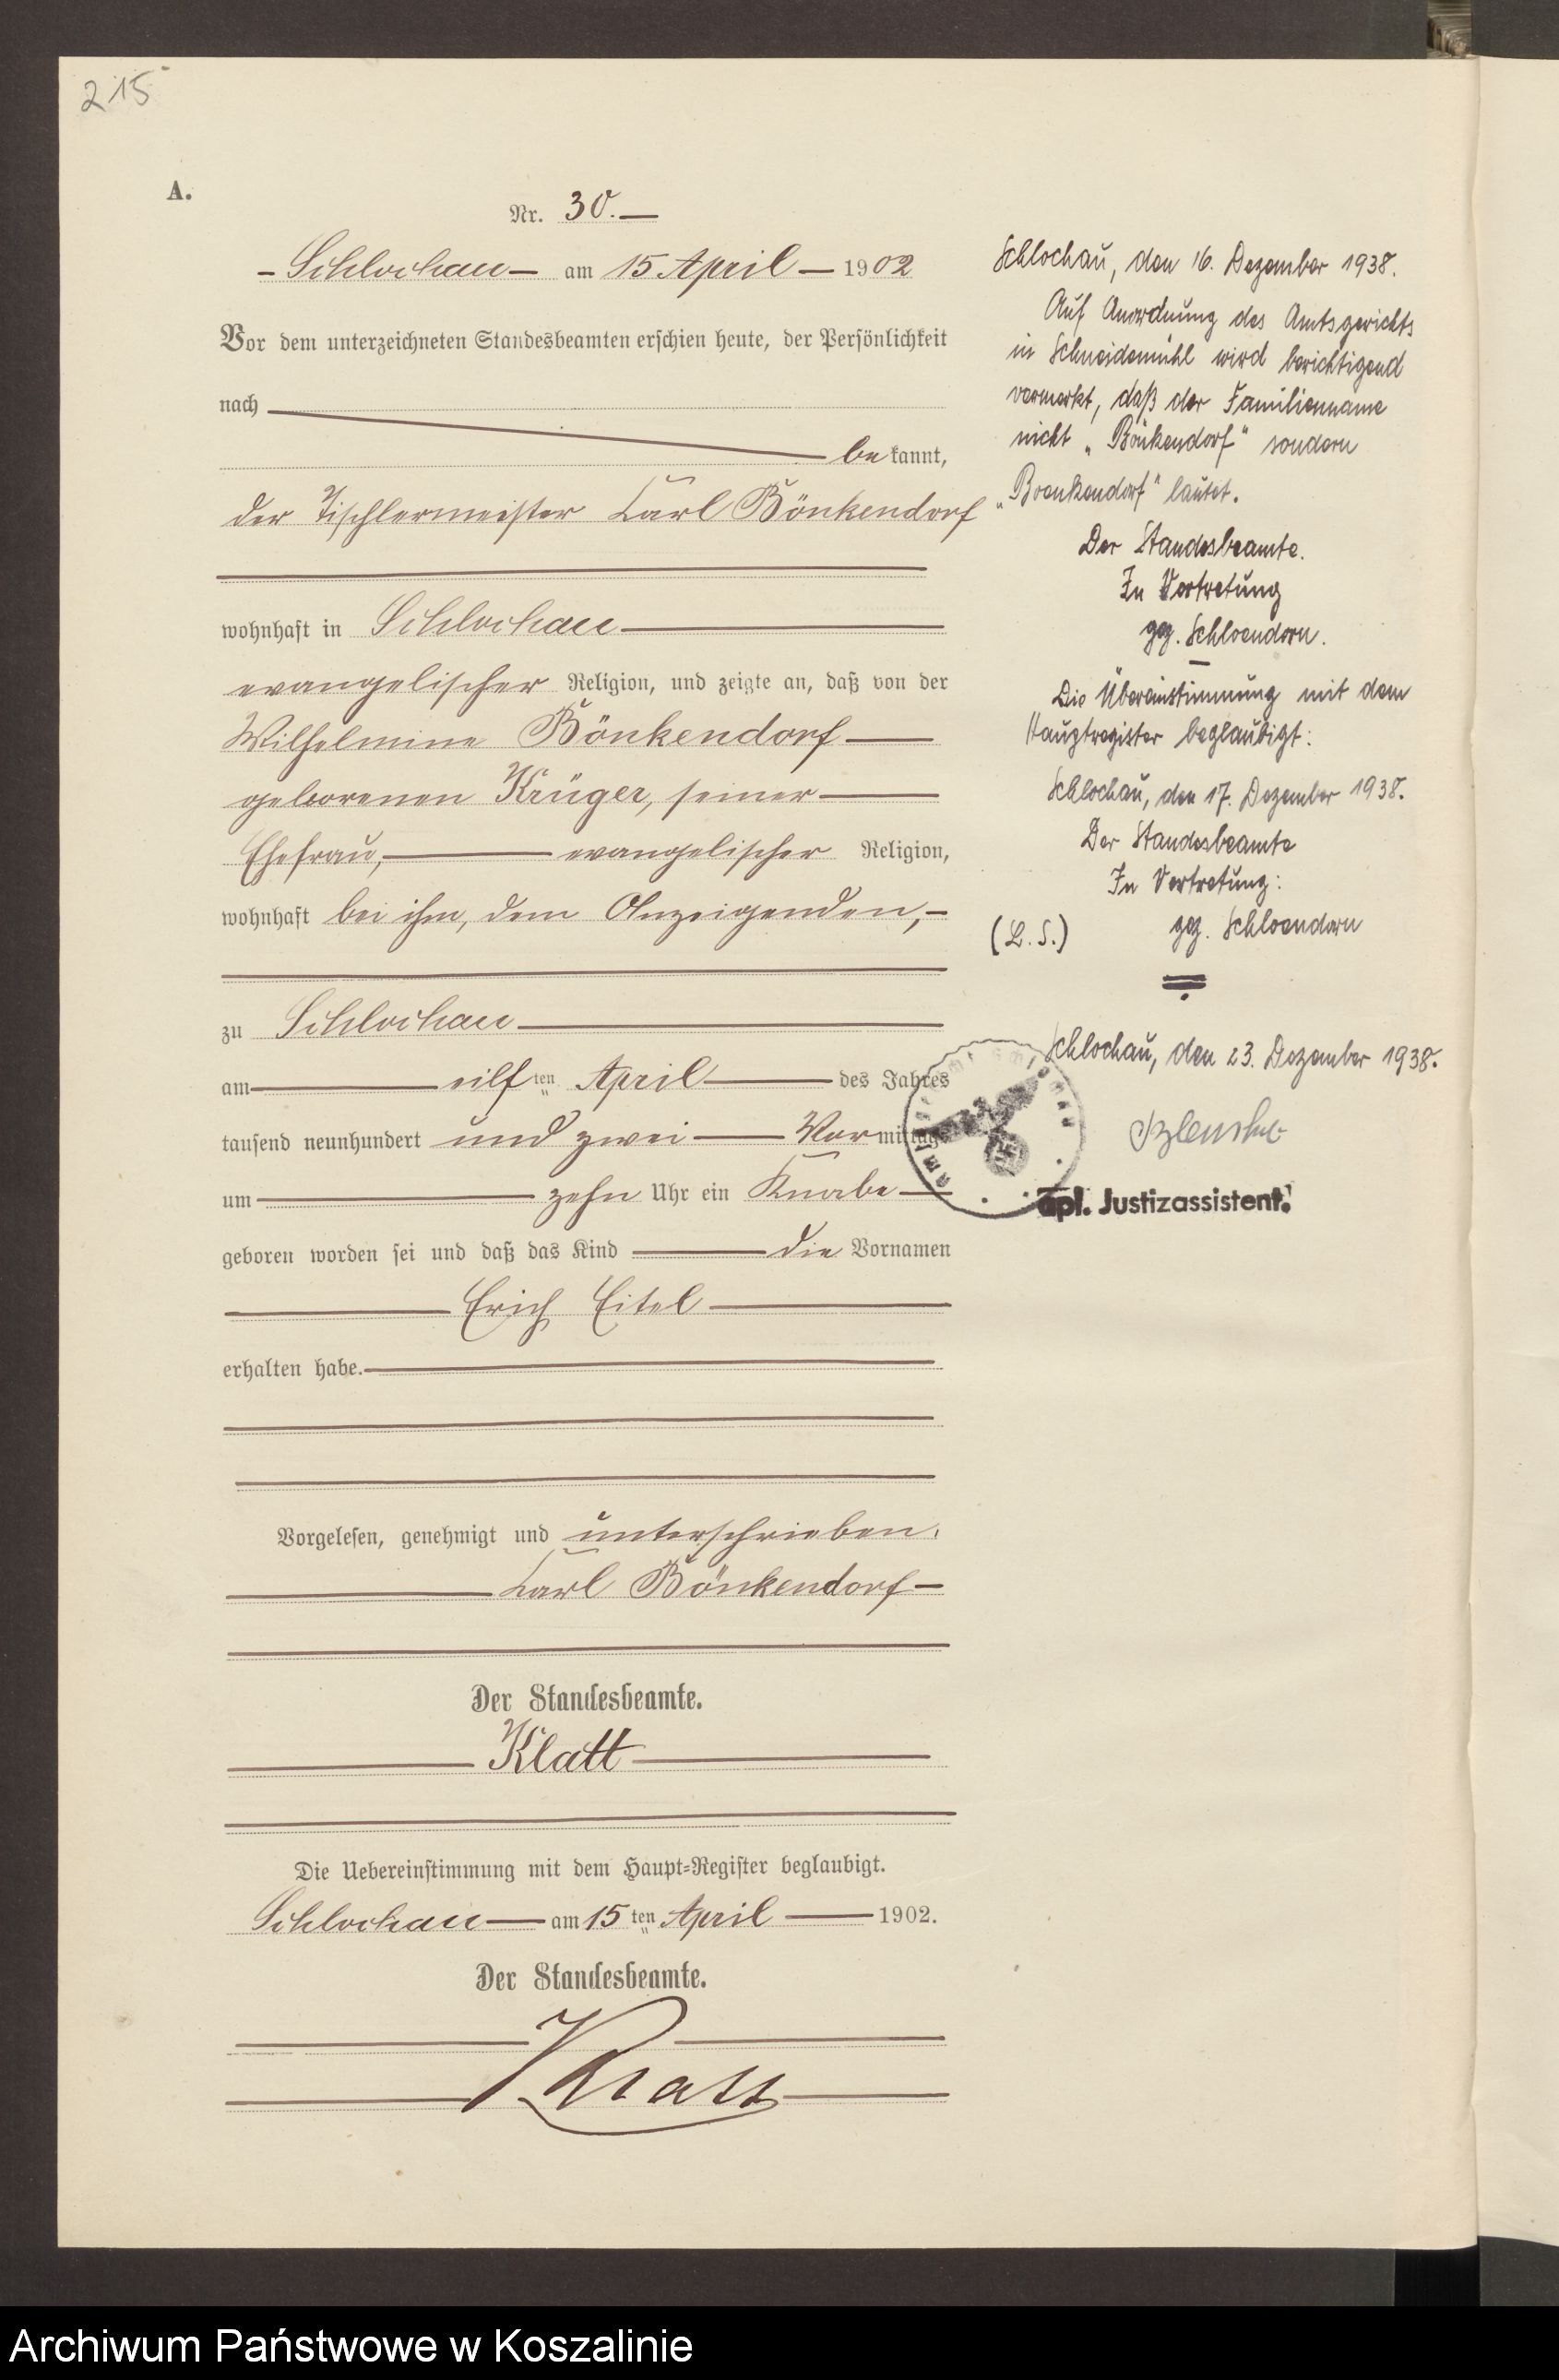 215
A.
Nr. 30.—
— Schlochau — am 15 April — 1902
Vor dem unterzeichneten Standesbeamten erschien heute, der Persönlichkeit
nach
bekannt,
der Tischlermeister Carl Bönkendorf
wohnhaft in Schlochau
evangelischer Religion, und zeigte an, daß von der
Wilhelmine Bönkendorf
geborenen Krüger, seiner
Ehefrau, evangelischer Religion,
wohnhaft bei ihm, dem Anzeigenden,
zu Schlochau
am eilften April des Jahres
tausend neunhundert und zwei Vormittags
um zehn Uhr ein Knabe
geboren worden sei und daß das Kind die Vornamen
Erich Eitel
erhalten habe.
Vorgelesen, genehmigt und unterschrieben.
Carl Bönkendorf
Der Standesbeamte.
Klatt
Die Uebereinstimmung mit dem Haupt-Register beglaubigt.
Schlochau am 15ten April 1902.
Der Standesbeamte.
Klatt
Schlochau, den 16. Dezember 1938.
Auf Anordnung des Amtsgerichts
in Schneidemühl wird berichtigend
vermerkt, daß der Familienname
nicht „Bönkendorf" sondern
„Boenkendorf" lautet.
Der Standesbeamte.
In Vertretung
gez. Schloendorn.
Die Übereinstimmung mit dem
Hauptregister beglaubigt:
Schlochau, den 17. Dezember 1938.
Der Standesbeamte
In Vertretung:
(L. S.) gez. Schloendorn
Schlochau, den 23. Dezember 1938.
apl. Justizassistent.
Archiwum Państwowe w Koszalinie